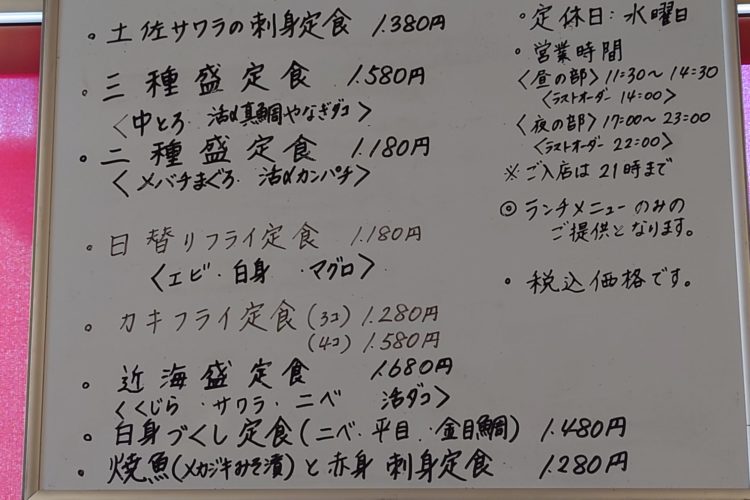 ・土佐サワラの刺身定食 1.380円
・三種盛定食 1.580円
〈中とろ 活〆真鯛やなぎダコ〉
・二種盛定食 1.180円
〈メバチまぐろ 活〆カンパチ〉
・日替りフライ定食 1.180円
〈エビ・白身 ・マグロ〉
・カキフライ定食(3コ) 1.280円
(4コ) 1.580円
・近海盛定食 1.680円
〈くじら・サワラ・ニベ 活ダコ〉
・白身づくし定食(ニベ・平目・金目鯛) 1.480円
・焼魚(メカジキみそ漬)と赤身刺身定食 1.280円
・定休日:水曜日
・営業時間
〈昼の部〉11:30〜14:30
〈ラストオーダー 14:00〉
〈夜の部〉17:00〜23:00
〈ラストオーダー 22:00〉
※ご入店は21時まで
◎ランチメニューのみの
ご提供となります。
・税込価格です。